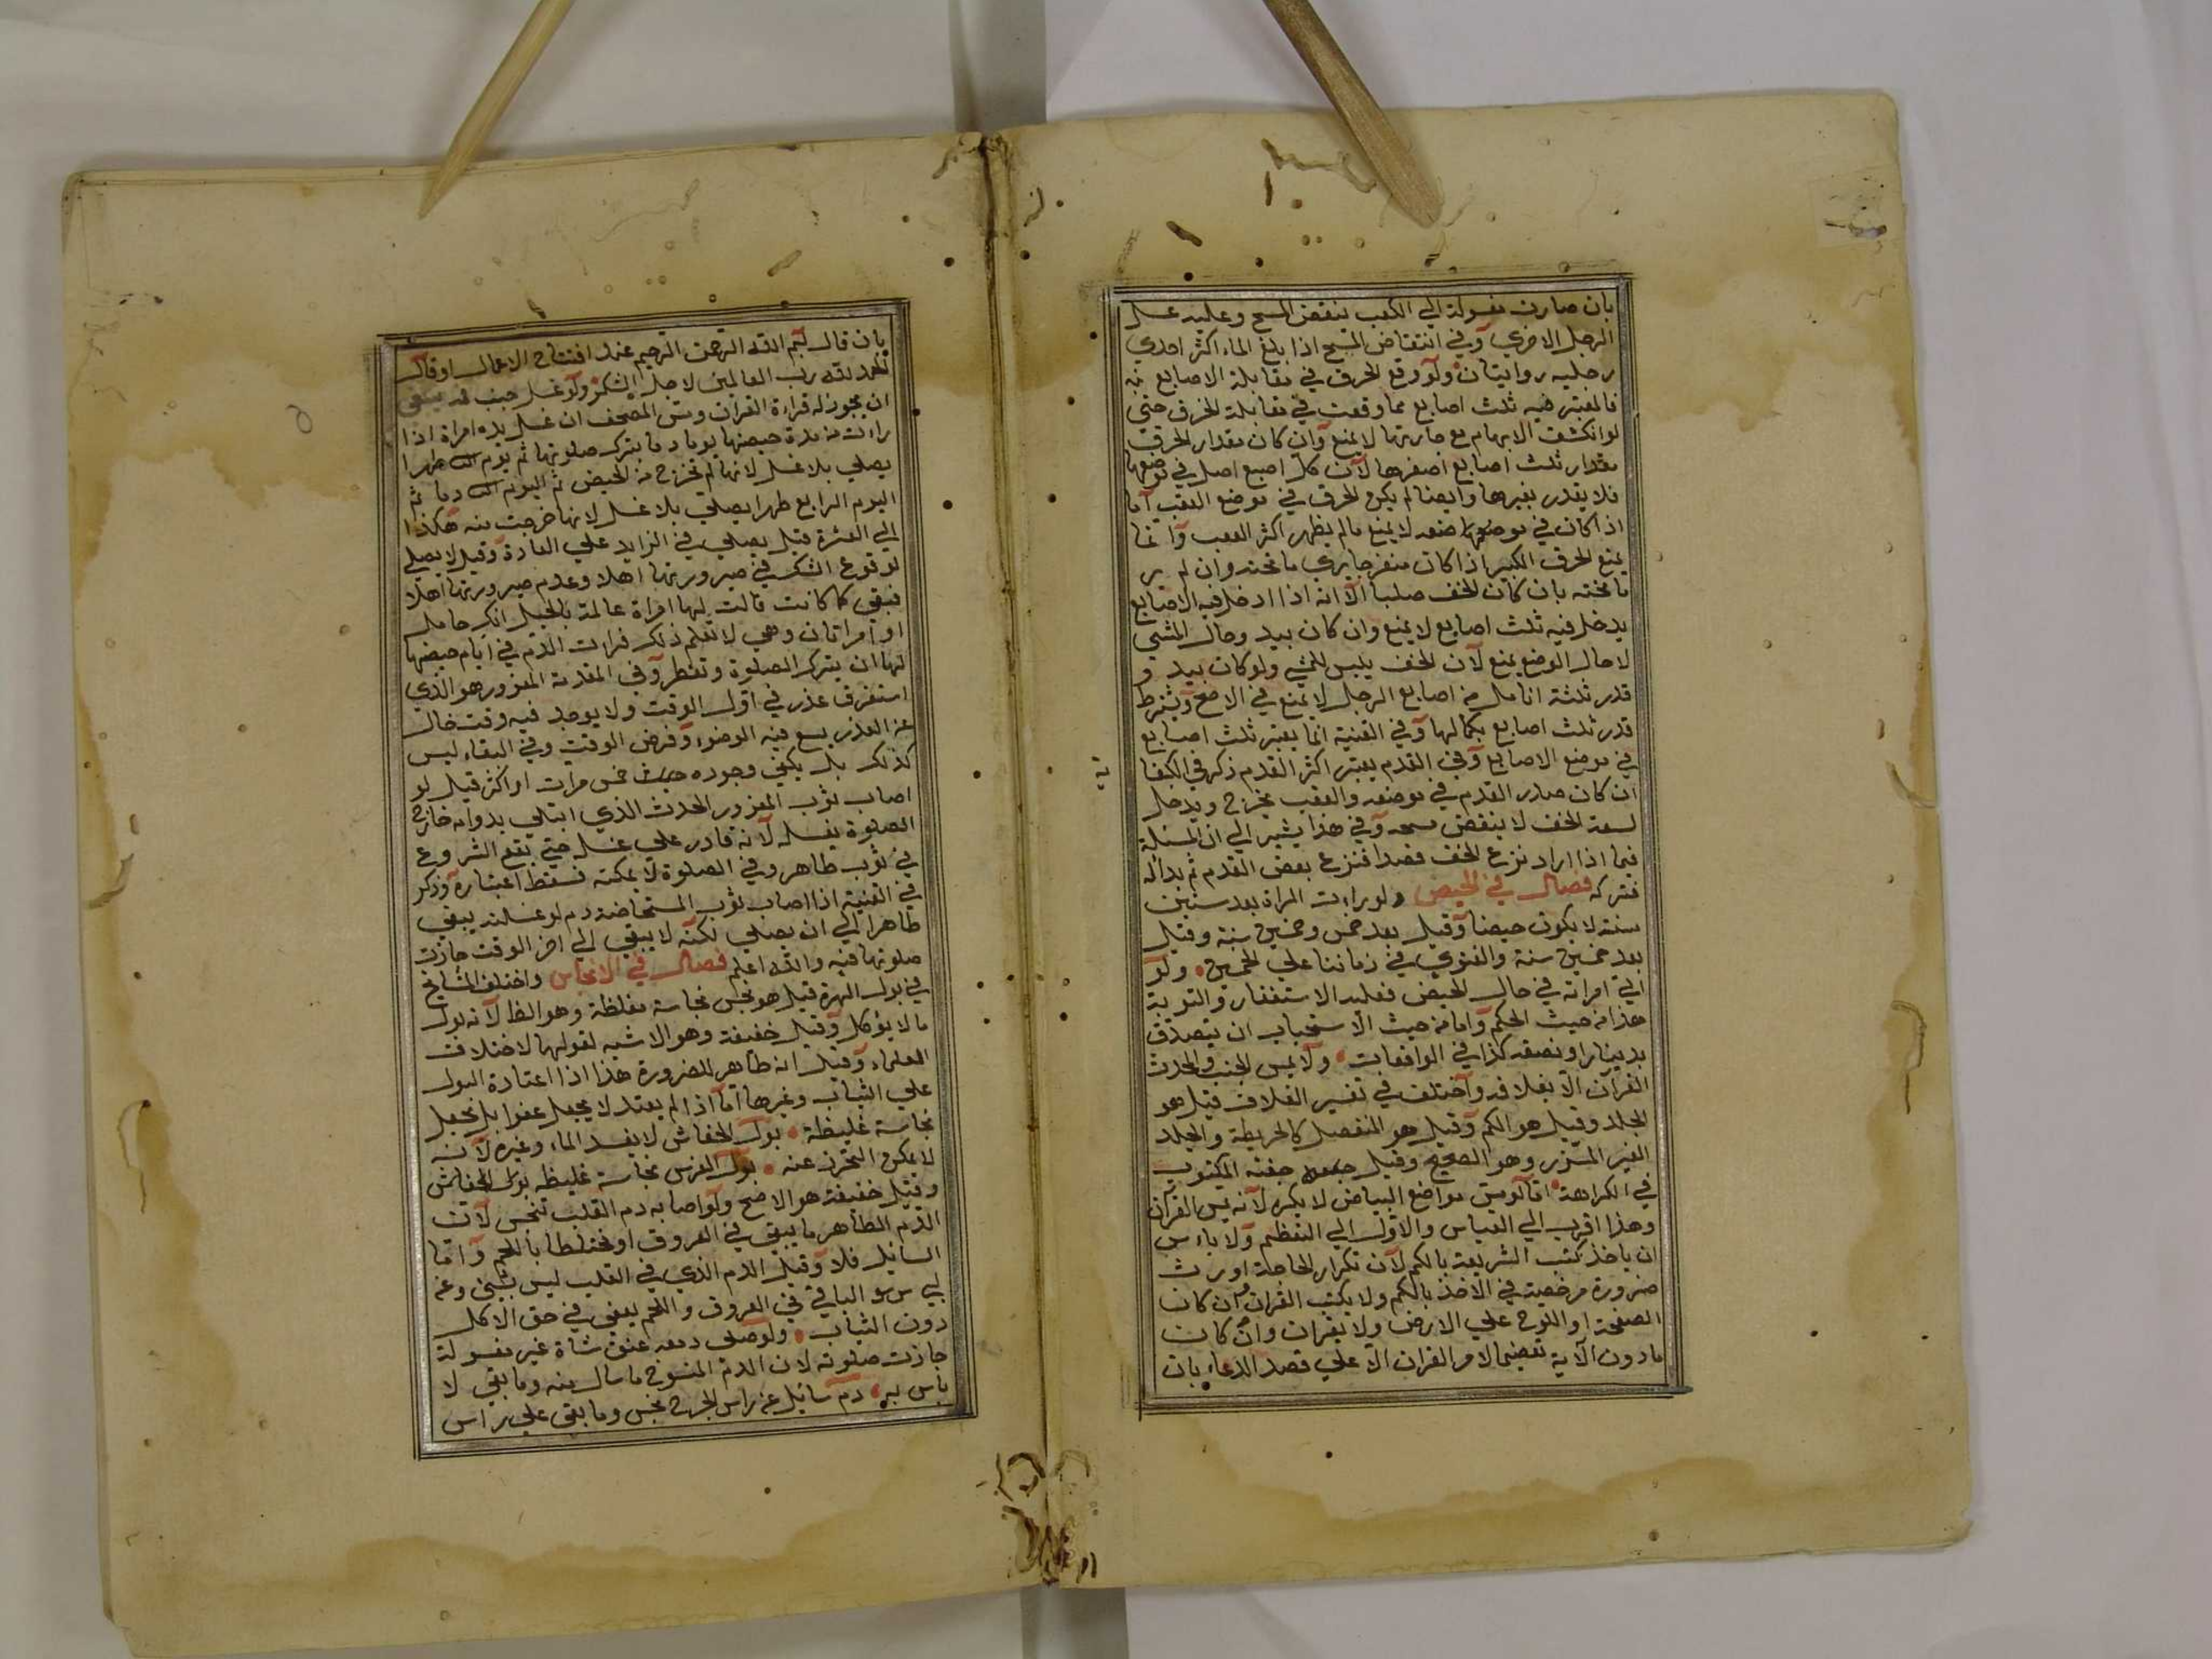 بان صارت مغسولة الي الكعب ينقض المسح وعليه غسل
الرجل الاخري وفي انتقاض المسح اذا بلغ الماء اكثر احدي
رجليه روايتان ولو وقع الخرق في مقابلة الاصابع
فالمعتبر فيه ثلث اصابع مما وقعت في مقابلة الخرق حتي
لو انكشف الابهام مع جارتها لا يمنع وان كان مقدار الخرق
مقدار ثلث اصابع اصغرها لان كل اصبع اصل في موضعها
فلا يقدر بغيرها وايضا لم يكن الخرق في موضع العقب اما
اذا كان في موضعها لا يمنع مالم يظهر اكثر العقب وانما
يمنع الخرق الكبير اذا كان منفرجا يري ما تحته وان لم ير
ما تحته بان كان الخف صلبا الا انه اذا ادخل فيه الاصابع
يدخل فيه ثلث اصابع لا يمنع وان كان يبد وحال المشي
لا حال الوضع يمنع لان الخف يلبس للمشي ولو كان يبد و
قدر ثلثة انامل من اصابع الرجل لا يمنع في الاصح ويشترط
قدر ثلث اصابع بكمالها وفي القنية انما يعتبر ثلث اصابع
في موضع الاصابع وفي القدم يعتبر اكثر القدم ذكره في الكفا
ية
ان كان صدر القدم في موضعه والعقب يخرج ويدخل
لسعة الخف لا ينقض مسحه وفي هذا يشير الي ان المسئلة
فيما اذا اراد نزع الخف قصدا فنزع بعض القدم ثم بداله
فتركه فصل في الحيض ولو رات المراة بعد ستين
سنة لا يكون حيضا وقيل بعد خمس وخمسين سنة وقيل
بعد خمسين سنة والفتوي في زماننا علي الخمسين ولو
اتي امراته في حال الحيض فعليه الاستغفار والتوبة
هذا من حيث الحكم واما من حيث الاستحباب ان يتصدق
بدينار او نصفه كذا في الواقعات ولا يمس الجنب والمحدث
القران الا بغلافه واختلف في تفسير الغلاف قيل هو
الجلد وقيل هو الكم وقيل هو المنفصل كالخريطة والجلد
الغير المشرز وهو الصحيح وقيل المكتوب
في الكراهة اما لو مس مواضع البياض لا يكره لانه لم يمس القران
وهذا اقرب الي القياس والاول الي التعظيم ولا باس
ان ياخذ كتب الشريعة بالكم لان تكرار الحاجة اورث
ضرورة مرخصة في الاخذ بالكم ولا يكتب القران وان كان
الصفحة او اللوح علي الارض ولا يقران وان كان
ما دون الاية تعظيما لامر القران الا علي قصد الدعاء بان
بان قال بسم الله الرحمن الرحيم عند افتتاح الاعمال او قال
الحمد لله رب العالمين لاجل الشكر ولو غسل جنب فمه ينبغي
ان يجوز له قراءة القران ومس المصحف ان غسل يده امراة اذا
رات من مدة حيضها يوما دما يترك صلوتها ثم يوم طهرا
يصلي بلا غسل لانها لم تخرج من الحيض ثم اليوم دما ثم
اليوم الرابع طهرا يصلي بلا غسل لانها خرجت منه هكذا
الي العشرة قيل يصلي في الزايد علي العادة وقيل لا يصلي
لوقوع الشك في صيرورتها اهلا وعدم صيرورتها اهلا
فبقي كما كانت قالت لها امراة عالمة بالحبل انك حامل
او امراتان وهي لا تعلم ذلك فرات الدم في ايام حيضها
لها ان يترك الصلوة وتفطر وفي المقدمة المعزور هو الذي
استغرق عذر في اول الوقت ولا يوجد فيه وقت خال
عن العذر يسع فيه الوضوء وفرض الوقت وفي البقاء ليس
كذلك بل يكفي وجوده خمس مرات او اكثر قيل لو
اصاب ثوب المعزور الحدث الذي ابتلي بدوامه خارج
الصلوة يغسله لانه قادر علي غسله حتي يقع الشروع
في ثوب طاهر وفي الصلوة لا يمكنه فسقط اعتباره وذكر
في القنية اذا اصاب ثوب المستحاضة دم لو غسلته يبقي
طاهرا الي ان يصلي لكنه لا يبقي الي اخر الوقت جازت
صلوتها فيه والله اعلم فصل في الانجاس واختلف المشايخ
في بول الهرة قيل هو نجس نجاسة مغلظة وهو الظا لانه بول
ما لا يؤكل وقيل خفيفة وهو الاشبه لقولهما لاختلاف
العلماء وقيل انه طاهر للضرورة هذا اذا اعتادة البول
علي الثياب وغيرها اما اذا لم يعتد لا يجعل عفوا بل يجعل
نجاسة غليظة بول الخفاش لا يفسد الماء وغيره لانه
لا يمكن التحرز عنه بول الفرس نجاسة غليظه بول الخفاش
وقيل خفيفة هو الاصح ولو اصابه دم القلب تنجس لان
الدم الطاهر ما يبقي في العروق او مختلطا باللحم واما
السائل فلا وقيل الدم الذي في القلب ليس بشئ وعن
الباقي في العروق واللحم يعفي في حق الاكل
دون الثياب ولو صلي ومعه عنق شاة غير مغسولة
جازت صلوته لان الدم المسفوح ما سال منه وما بقي لا
باس به دم سائل عن راس الجرح نجس وما بقي علي راس